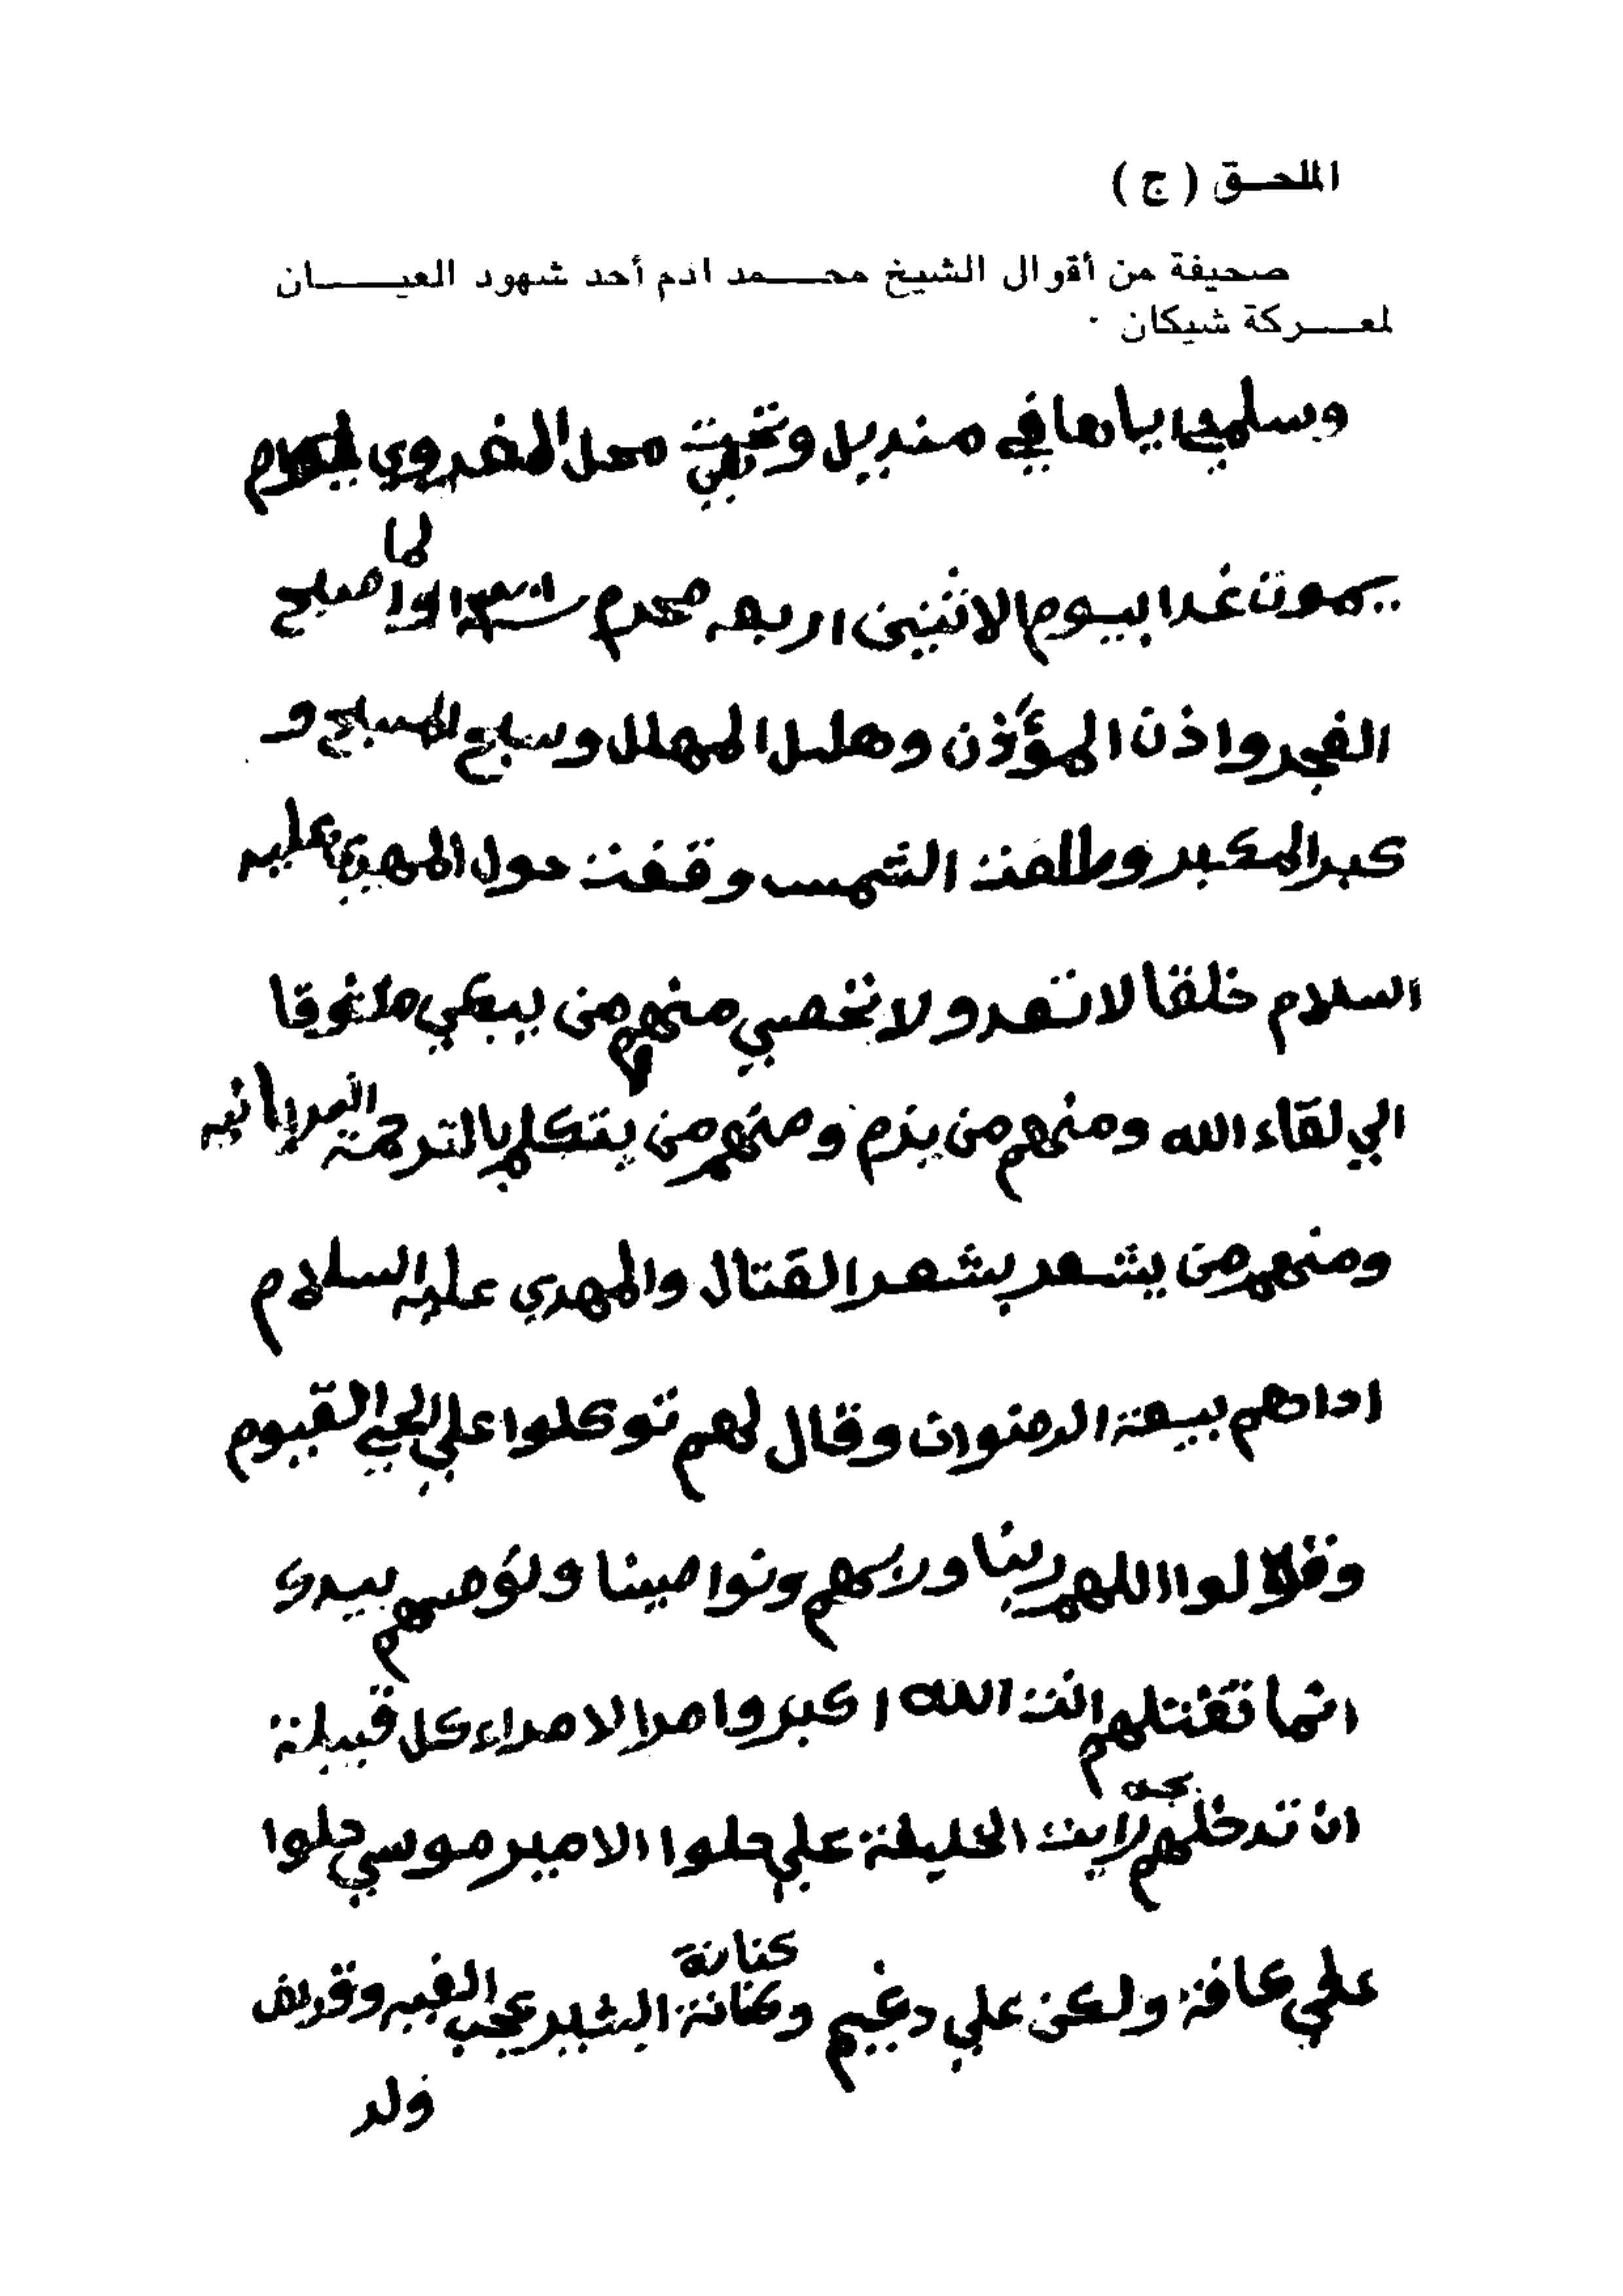 الملحق (ج)
صحيفة من أقوال الشيخ محمد ادم أحد شهود العيان
لمعركة شيكان .
وسلمي اياها في منديل محل
لما
يموت غدا بيوم الاثنين اربعه محرم اصبح
الفجر واذن المؤذن وهلل المهلل وسبح المسبح و
كبر المكبر وطلعت الشمس وقفت حول المهدي عليه
السلام خلقا لا تعد ولا تحصي منهم من يبكي
الي لقاء الله ومنهم من يزم ومنهم من يتكلم بالترجمة
ومنهم من يشعر بشعر القتال والمهدي عليه السلام
ادادهم بيعة الرضوان وقال لهم توكلوا علي الحي القيوم
اللهم ربنا وربهم ونواصينا ونوصيهم بيدك
انما تقتلهم انت الله اكبر وامر الامراء كل قبيلة
بجه
ان تدخلهم لرايت الخليفة علي حلوا الامير موسي حلوا
كنانة
علي عافة ولكن علي دغيم وكنانة
ولد